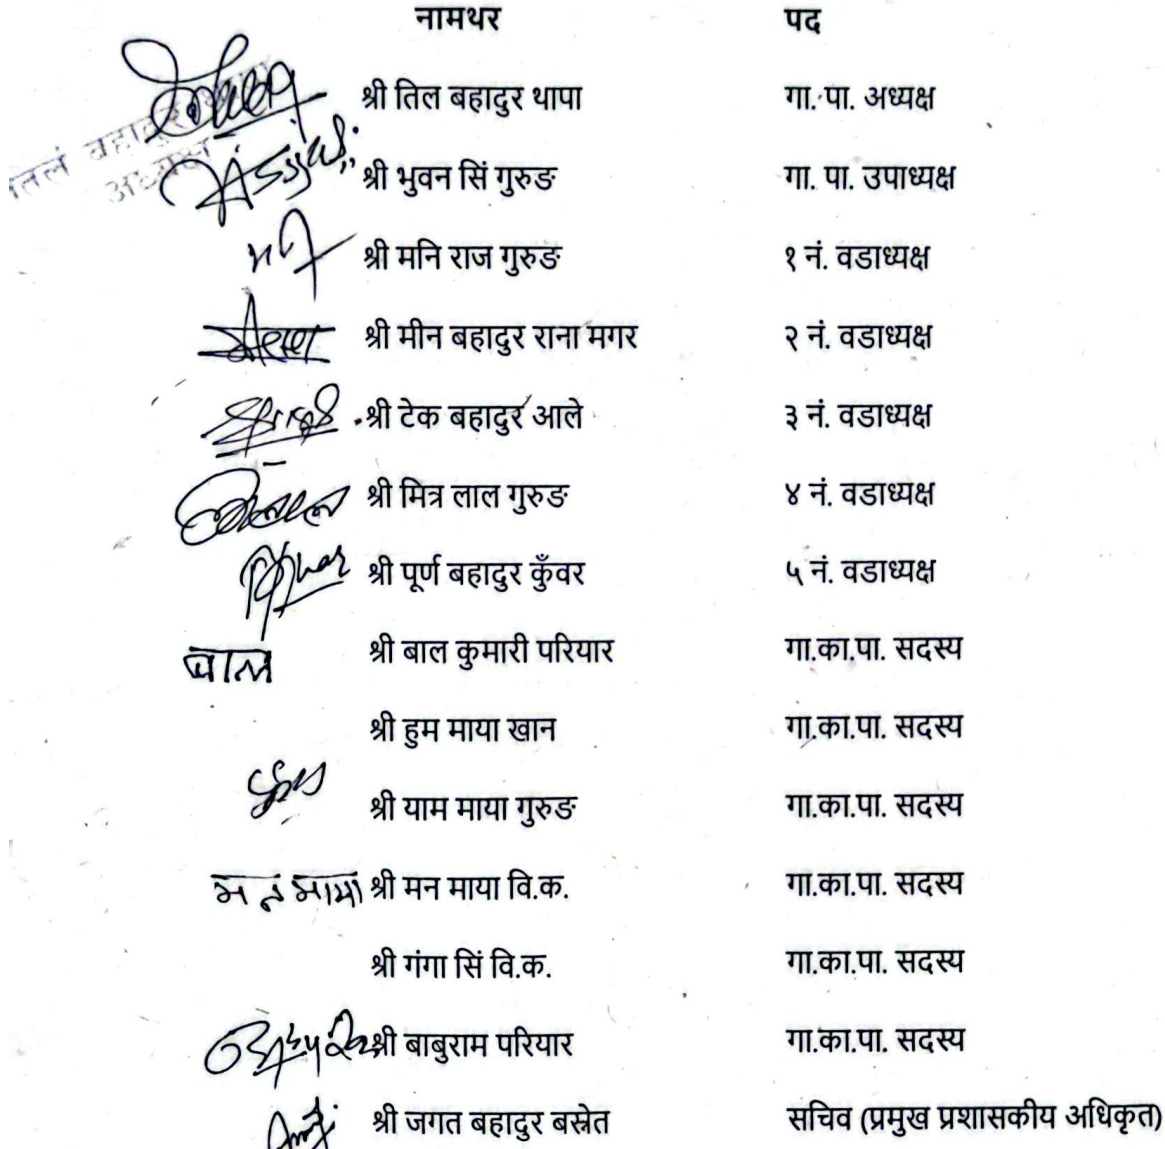 नामथर पद
श्री तिल बहादुर थापा गा. पा. अध्यक्ष
तिल बहादुर
अध्यक्ष
श्री भुवन सिं गुरुङ गा. पा. उपाध्यक्ष
श्री मनि राज गुरुङ १ नं. वडाध्यक्ष
श्री मीन बहादुर राना मगर २ नं. वडाध्यक्ष
श्री टेक बहादुर आले ३ नं. वडाध्यक्ष
श्री मित्र लाल गुरुङ ४ नं. वडाध्यक्ष
श्री पूर्ण बहादुर कुँवर ५ नं. वडाध्यक्ष
बाल श्री बाल कुमारी परियार गा.का.पा. सदस्य
श्री हुम माया खान गा.का.पा. सदस्य
श्री याम माया गुरुङ गा.का.पा. सदस्य
मन माया श्री मन माया वि.क. गा.का.पा. सदस्य
श्री गंगा सिं वि.क. गा.का.पा. सदस्य
श्री बाबुराम परियार गा.का.पा. सदस्य
श्री जगत बहादुर बस्नेत सचिव (प्रमुख प्रशासकीय अधिकृत)